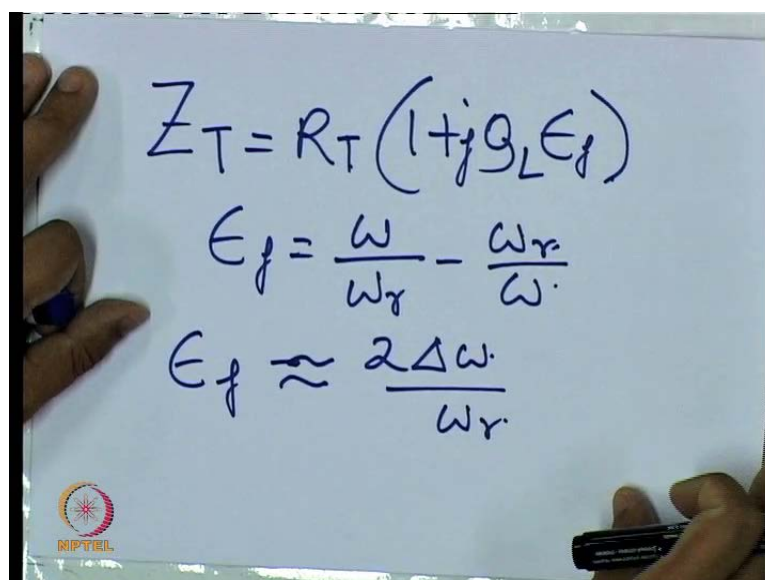 Z_T = R_T (1 + j Q_L ϵ_f)
ϵ_f = ω/ω_r - ω_r/ω
ϵ_f ≈ 2Δω/ω_r
NPTEL